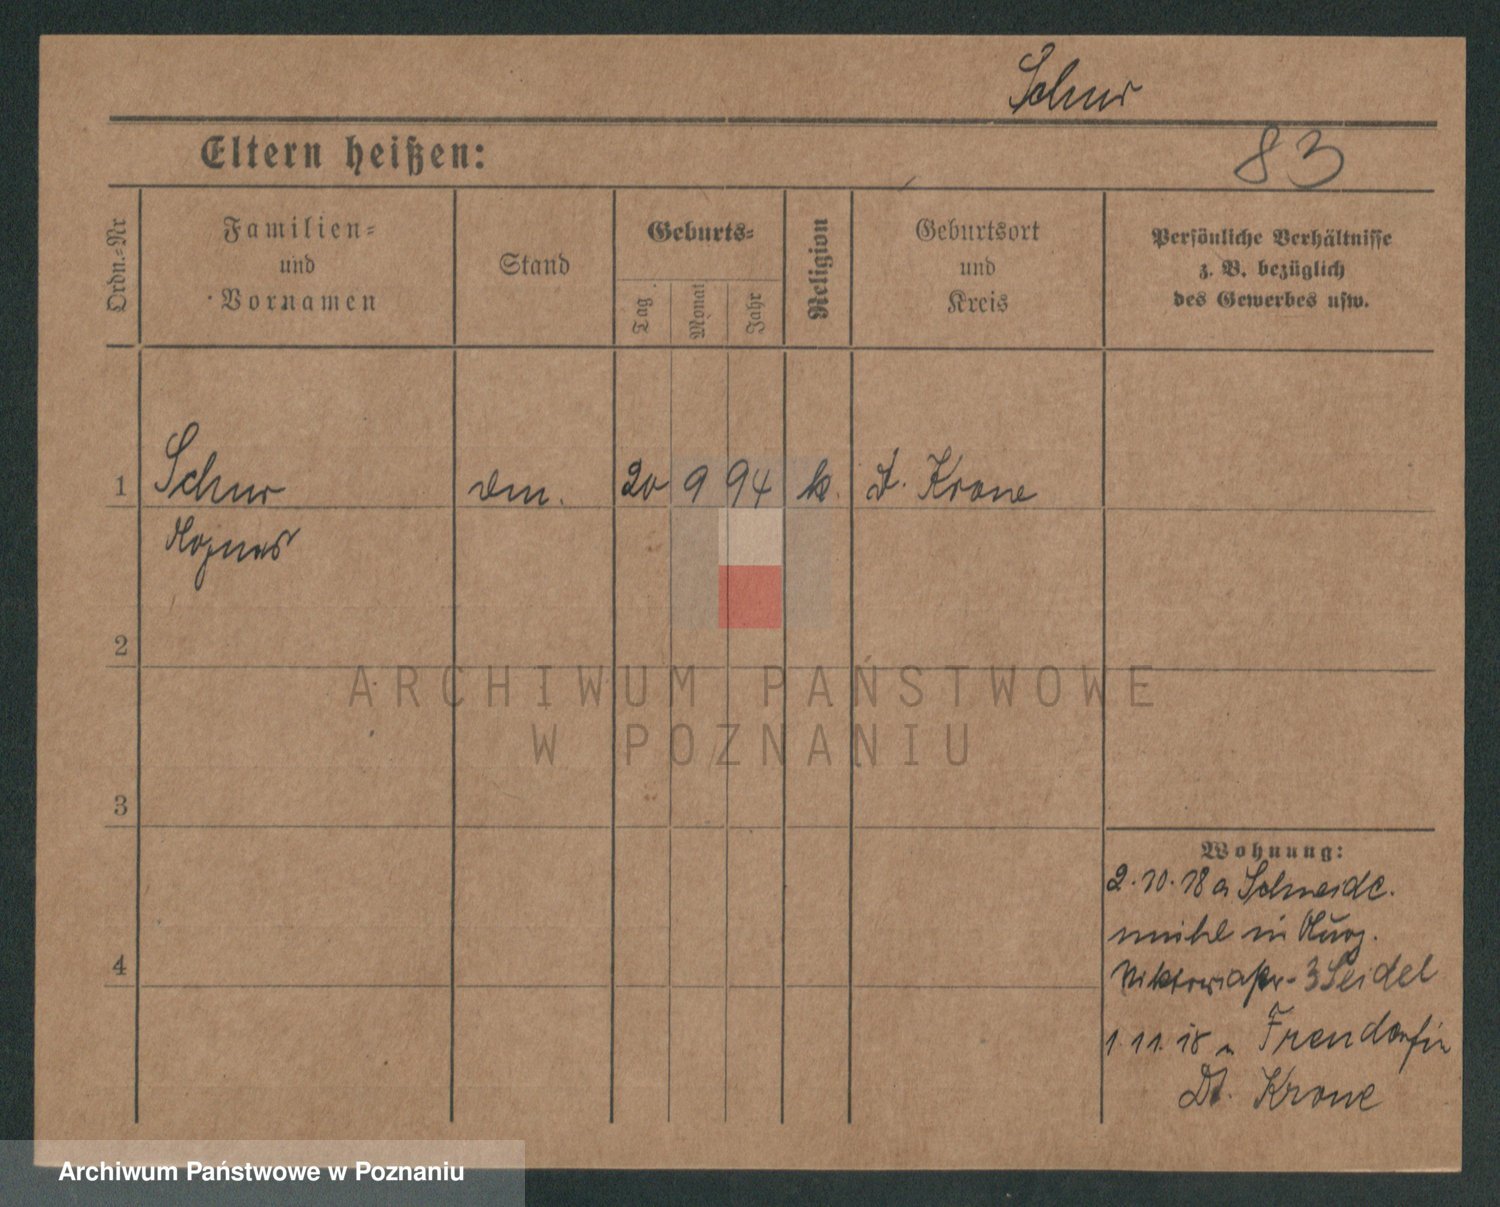 Schur
83
Eltern heißen:
Ordn.-Nr
Familien-
und
Vornamen
Stand
Geburts-
Tag
Monat
Jahr
Religion
Geburtsort
und
Kreis
Persönliche Verhältnisse
z. B. bezüglich
des Gewerbes usw.
1 Schur 20 9 94 k. D. Krone
2
ARCHIWUM PAŃSTWOWE
W POZNANIU
3
Wohnung:
2.10.18 a Schneide.
mühl in
4
Viktoriastr. 3 Seidel
1.11.18 n
Dt. Krone
Archiwum Państwowe w Poznaniu